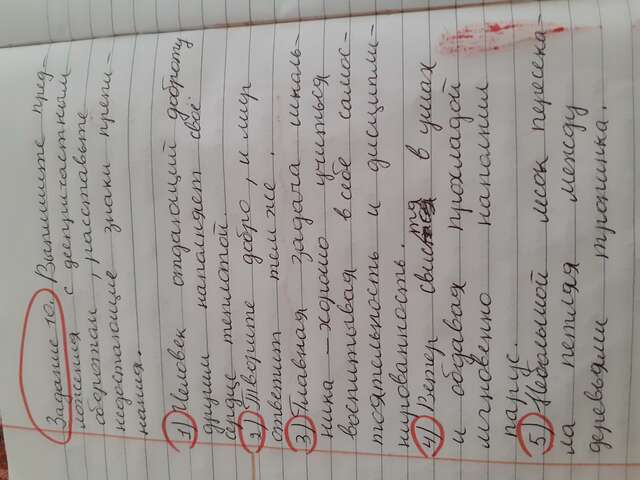 Задание 10. Выпишите пред-
ложения с деепричастным
оборотом, расставьте
недостающие знаки препи-
нания.
1) Человек отдающий доброту
другим наполняет своё
сердце теплотой.
2) Творите добро, и мир
ответит тем же.
3) Главная задача школь-
ника - хорошо учиться
воспитывая в себе самос-
тоятельность и дисципли-
нированность.
4) Ветер свистя в ушах
и обдавая прохладой
мгновенно наполнил
парус.
5) Небольшой лесок пересека-
ла петляя между
деревьями тропинка.